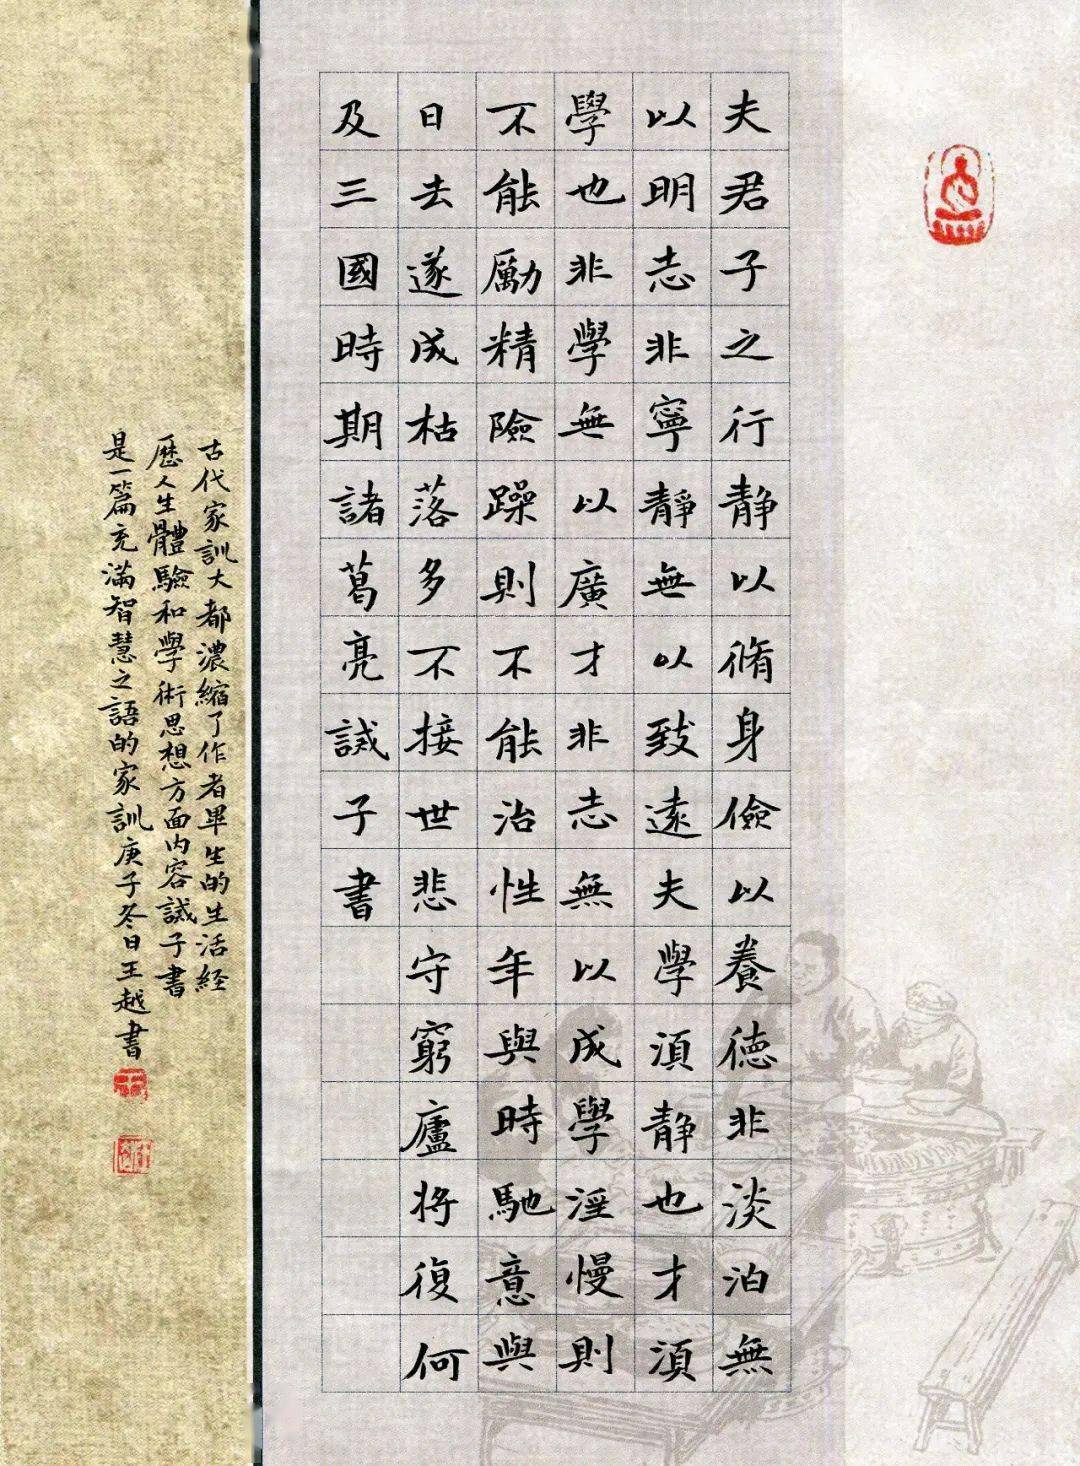 夫君子之行静以脩身儉以養德非淡泊無
以明志非寧靜無以致遠夫學須静也才須
學也非學無以廣才非志無以成學淫慢則
不能勵精險躁則不能治性年與時馳意與
日去遂成枯落多不接世悲守窮廬将復何
及三國時期諸葛亮誡子書
古代家訓大都濃縮了作者畢生的生活経
歷人生體驗和學術思想方面内容誡子書
是一篇充滿智慧之語的家訓庚子冬日王越書